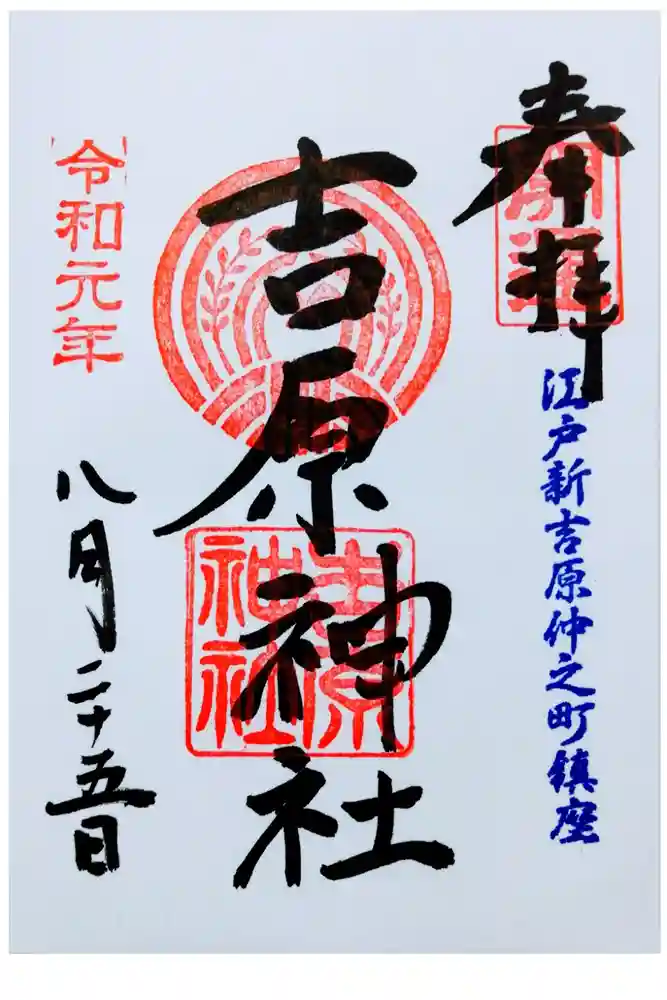 奉拝
開運
江戸新吉原仲之町鎮座
吉原神社
吉原
神社
令和元年
八月二十五日